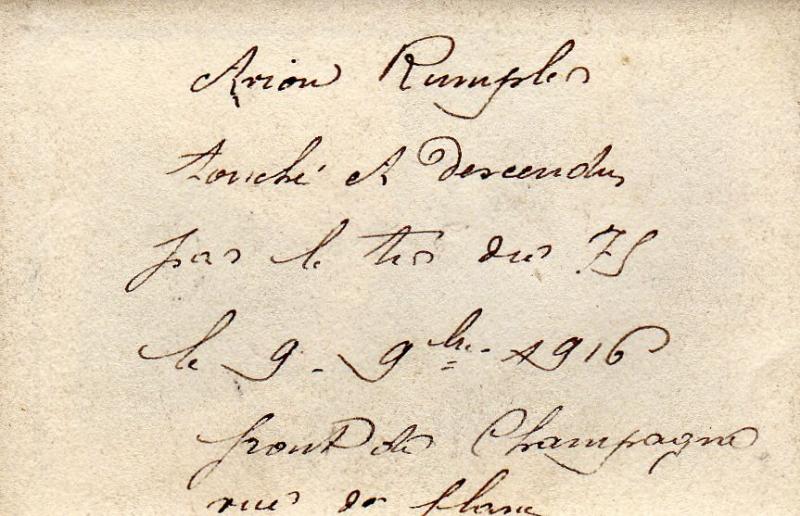 Avion Rumpler
touché et descendu
par le tir du 75
le 9 - 9bre 1916
front de Champagne
vue de flanc